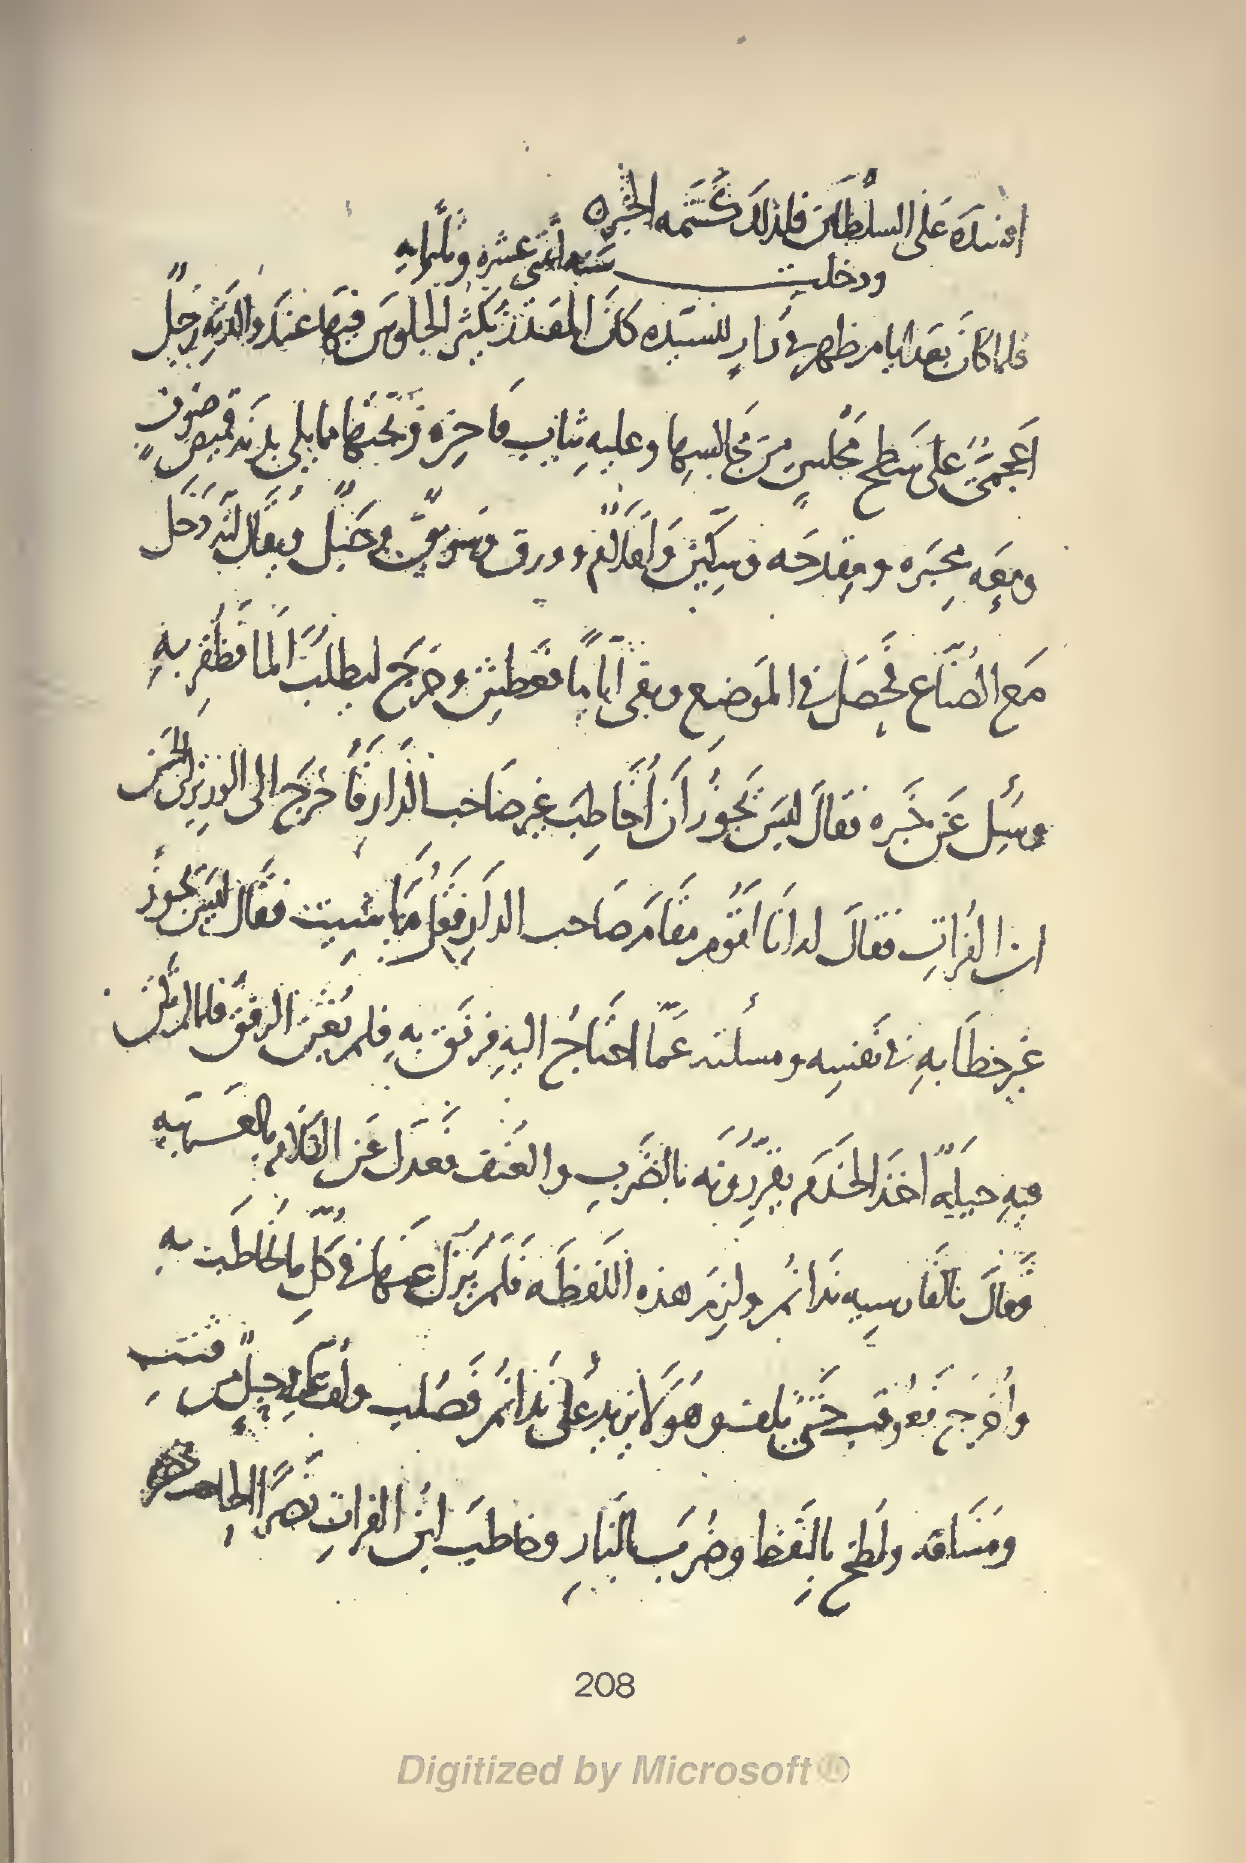 افسده على السلطان فلذلك كتمه الخبره
ودخلت سنه اثنتى عشره وثلثمايه
فلما كان بعد ايام ظهر في دار للسيده كان المقتدر يكثر الجلوس فيها عند والدته رجل
اعجمى على سطح مجلس من مجالسها وعليه ثياب فاخره وتحتها مما يلى بدنه قميص صوف
ومعه محبره ومقدحه وسكين واقلام وورق وسويق وحبل ويقال انه دخل
مع الصناع فحصل في الموضع وبقى اياما فعطش وخرج ليطلب الما فظفر به
وسئل عن خبره فقال ليس يجوز ان اخاطب غير صاحب الدار فاخرج الى الوزير ابى الحسن
ابن الفرات فقال له انا اقوم مقام صاحب الدار فقل ما شيت فقال ليس يجوز
غير خطابه في نفسه ومسلته عما احتاج اليه فرفق به فلم يغن الرفق فلما لم
فيه حيله اخذ الخدم يقررونه بالضرب والعنف فعدل عن الكلام بالعربيه
وقال بالفارسيه ندانم ولزم هذه اللفظه فلم يزل عنها في كل ما يخاطب به
واخرج فعوقب حتى تلف وهو لا يزيد على ندانم فصلب ولف عليه حبل من قنب
ومشاقه ولطخ بالنفط وضرب بالنار وخاطب ابن الفرات نصرا الحاجب
208
Digitized by Microsoft®